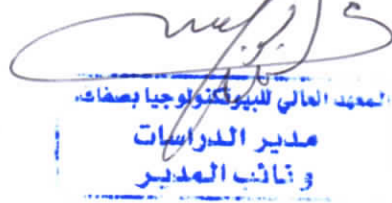 المعهد العالي للبيوتكنولوجيا بصفاقس
مدير الدراسات
و نائب المدير